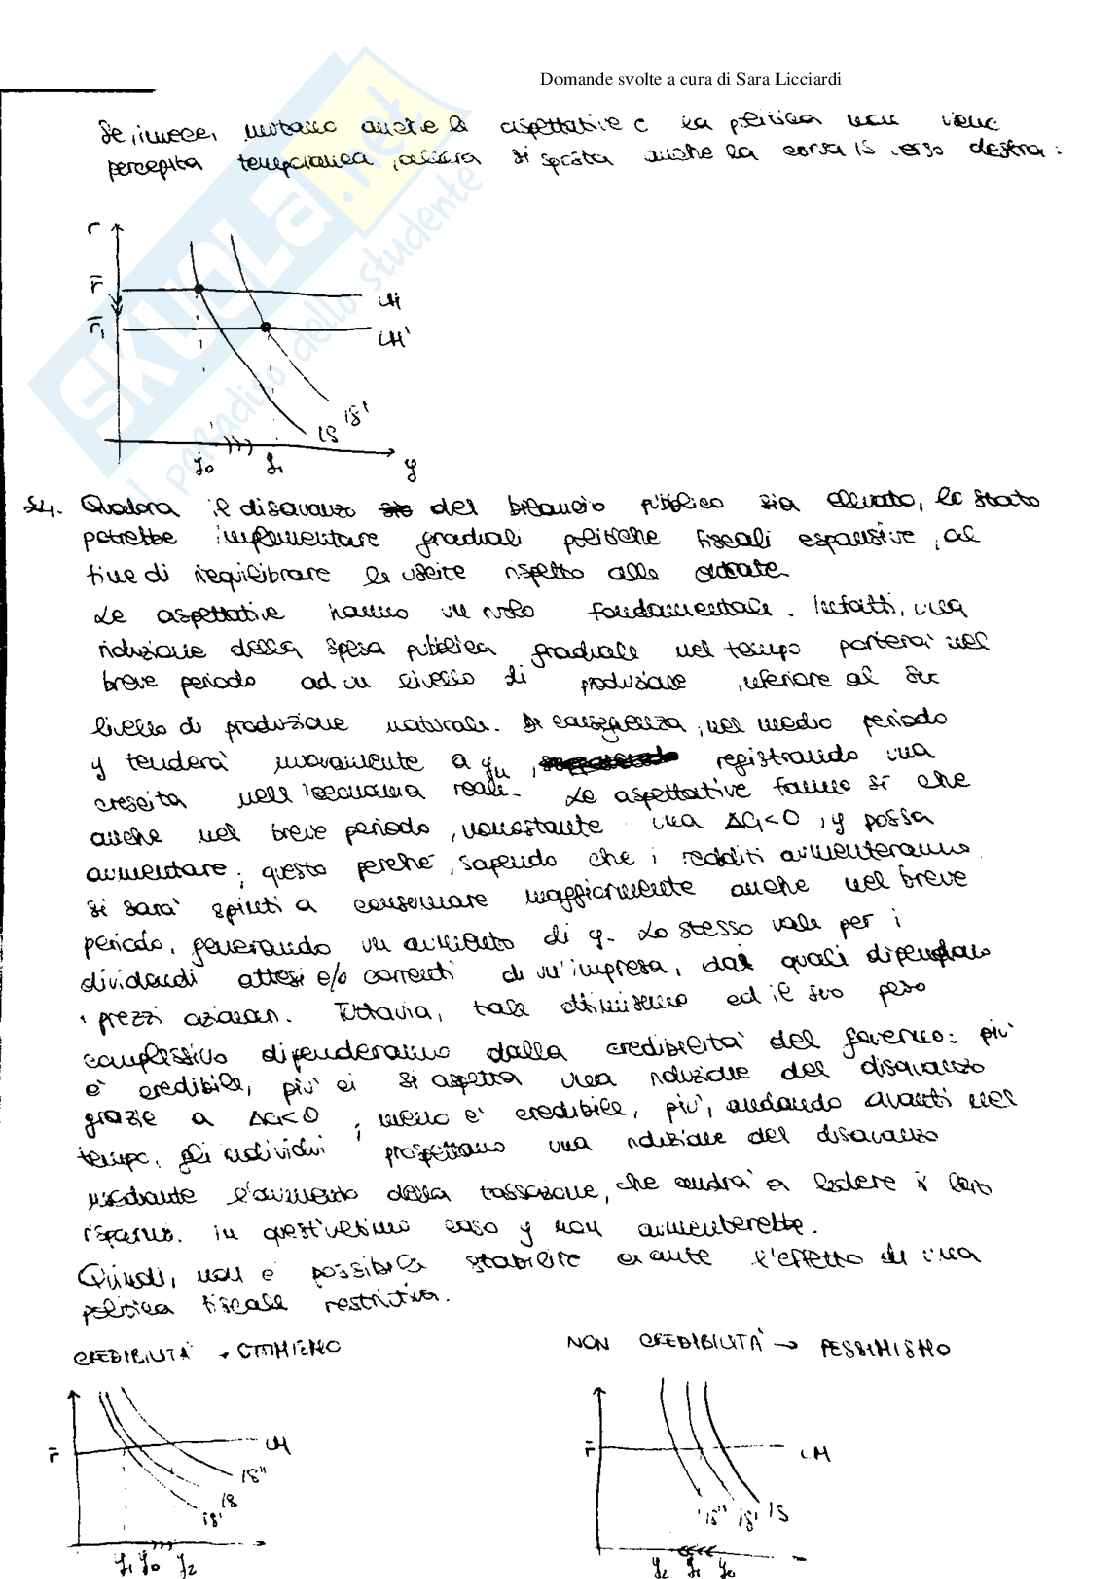 Domande svolte a cura di Sara Licciardi
Se, invece, mutano anche le aspettative e la politica non viene
percepita temporanea, allora si sposta anche la curva IS verso destra:
r
r̄
LM
r̄₁
LM'
IS'
IS
y₀ y₁ y
54. Qualora il disavanzo del bilancio pubblico sia elevato, lo stato
potrebbe implementare graduali politiche fiscali espansive, al
fine di riequilibrare le uscite rispetto alle entrate.
Le aspettative hanno un ruolo fondamentale. Infatti, una
riduzione della spesa pubblica graduale nel tempo porterà nel
breve periodo ad un livello di produzione inferiore al suo
livello di produzione naturale. Di conseguenza, nel medio periodo
y tenderà nuovamente a yn, registrando una
crescita nell'economia reale. Le aspettative fanno sì che
anche nel breve periodo, nonostante una ΔG<0, y possa
aumentare; questo perché, sapendo che i redditi aumenteranno
si sarà spinti a consumare maggiormente anche nel breve
periodo, generando un aumento di y. Lo stesso vale per i
dividendi attesi e/o correnti di un'impresa, dai quali dipendono
i prezzi azionari. Tuttavia, tale ottimismo ed il suo peso
complessivo dipenderanno dalla credibilità del governo: più
è credibile, più ci si aspetta una riduzione del disavanzo
grazie a ΔG<0; meno è credibile, più, andando avanti nel
tempo, gli individui prospettano una riduzione del disavanzo
mediante l'aumento della tassazione, che andrà a ledere i loro
risparmi. in quest'ultimo caso y non aumenterebbe.
Quindi, non è possibile stabilire ex ante l'effetto di una
politica fiscale restrittiva.
CREDIBILITÀ → OTTIMISMO
NON CREDIBILITÀ → PESSIMISMO
r̄
LM
IS''
IS
IS'
y₁ y₀ y₂
r̄
LM
IS'' IS' IS
y₂ y₁ y₀
SKUOLA.net
il paradiso dello studente